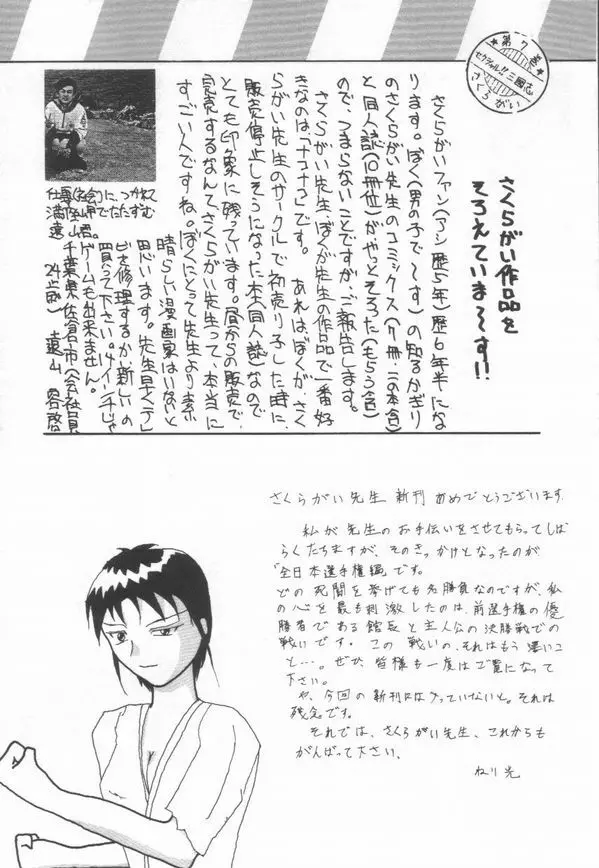 ★第7巻★
セクシャル!!三國志
さくらがい
さくらがい作品を
そろえていま〜す!!
さくらがいファン(アシ歴5年)歴6年半にな
ります。ぼく(男の子で〜す)の知るかぎり
のさくらがい先生のコミックス(八冊・二の本含)
と同人誌(10冊位)がやっとそろた(もらう含)
ので、つまらないことですが、ご報告します。
さくらがい先生、ぼくが先生の作品で一番好
きなのは、「ナコナコ」です。あれはぼくが、さく
らがい先生のサークルで初売り子した時に、
販売停止しそうになった本(同人誌)なので
とても印象に残っています。昼からの販売で、
完売するなんて、さくらがい先生って、本当に
すごい人ですね。ぼくにとって先生より素
晴らしい漫画家はいないと
思います。先生早くテレ
ビを修理するかい新しいの
買って下さい。4インチじゃ
ゲームも出来ません。
千葉県佐倉市(会社員
24歳) 遠山
さくらがい先生 新刊 おめでとうございます
私が先生のお手伝いをさせてもらってしば
らくたちますが、そのきっかけとなったのが
「全日本選手権編」です。
どの死闘を挙げても名勝負なのですが、私
の心を最も刺激したのは、前選手権の優
勝者である館長と主人公の決勝戦での
戦いです。この戦いの、それはもう凄いこ
と…。ぜひ皆様も一度はご覧になって
下さい。
や、今回の新刊には入っていないと。それは
残念です。
それでは、さくらがい先生、これからも
がんばって下さい、
ねり光